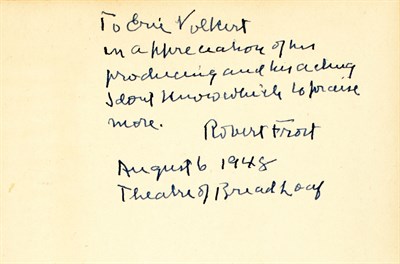 To Eric Volkert
in appreciation of his
producing and his acting
I dont know which to praise
more.
Robert Frost
August 6 1948
Theatre of Bread Loaf